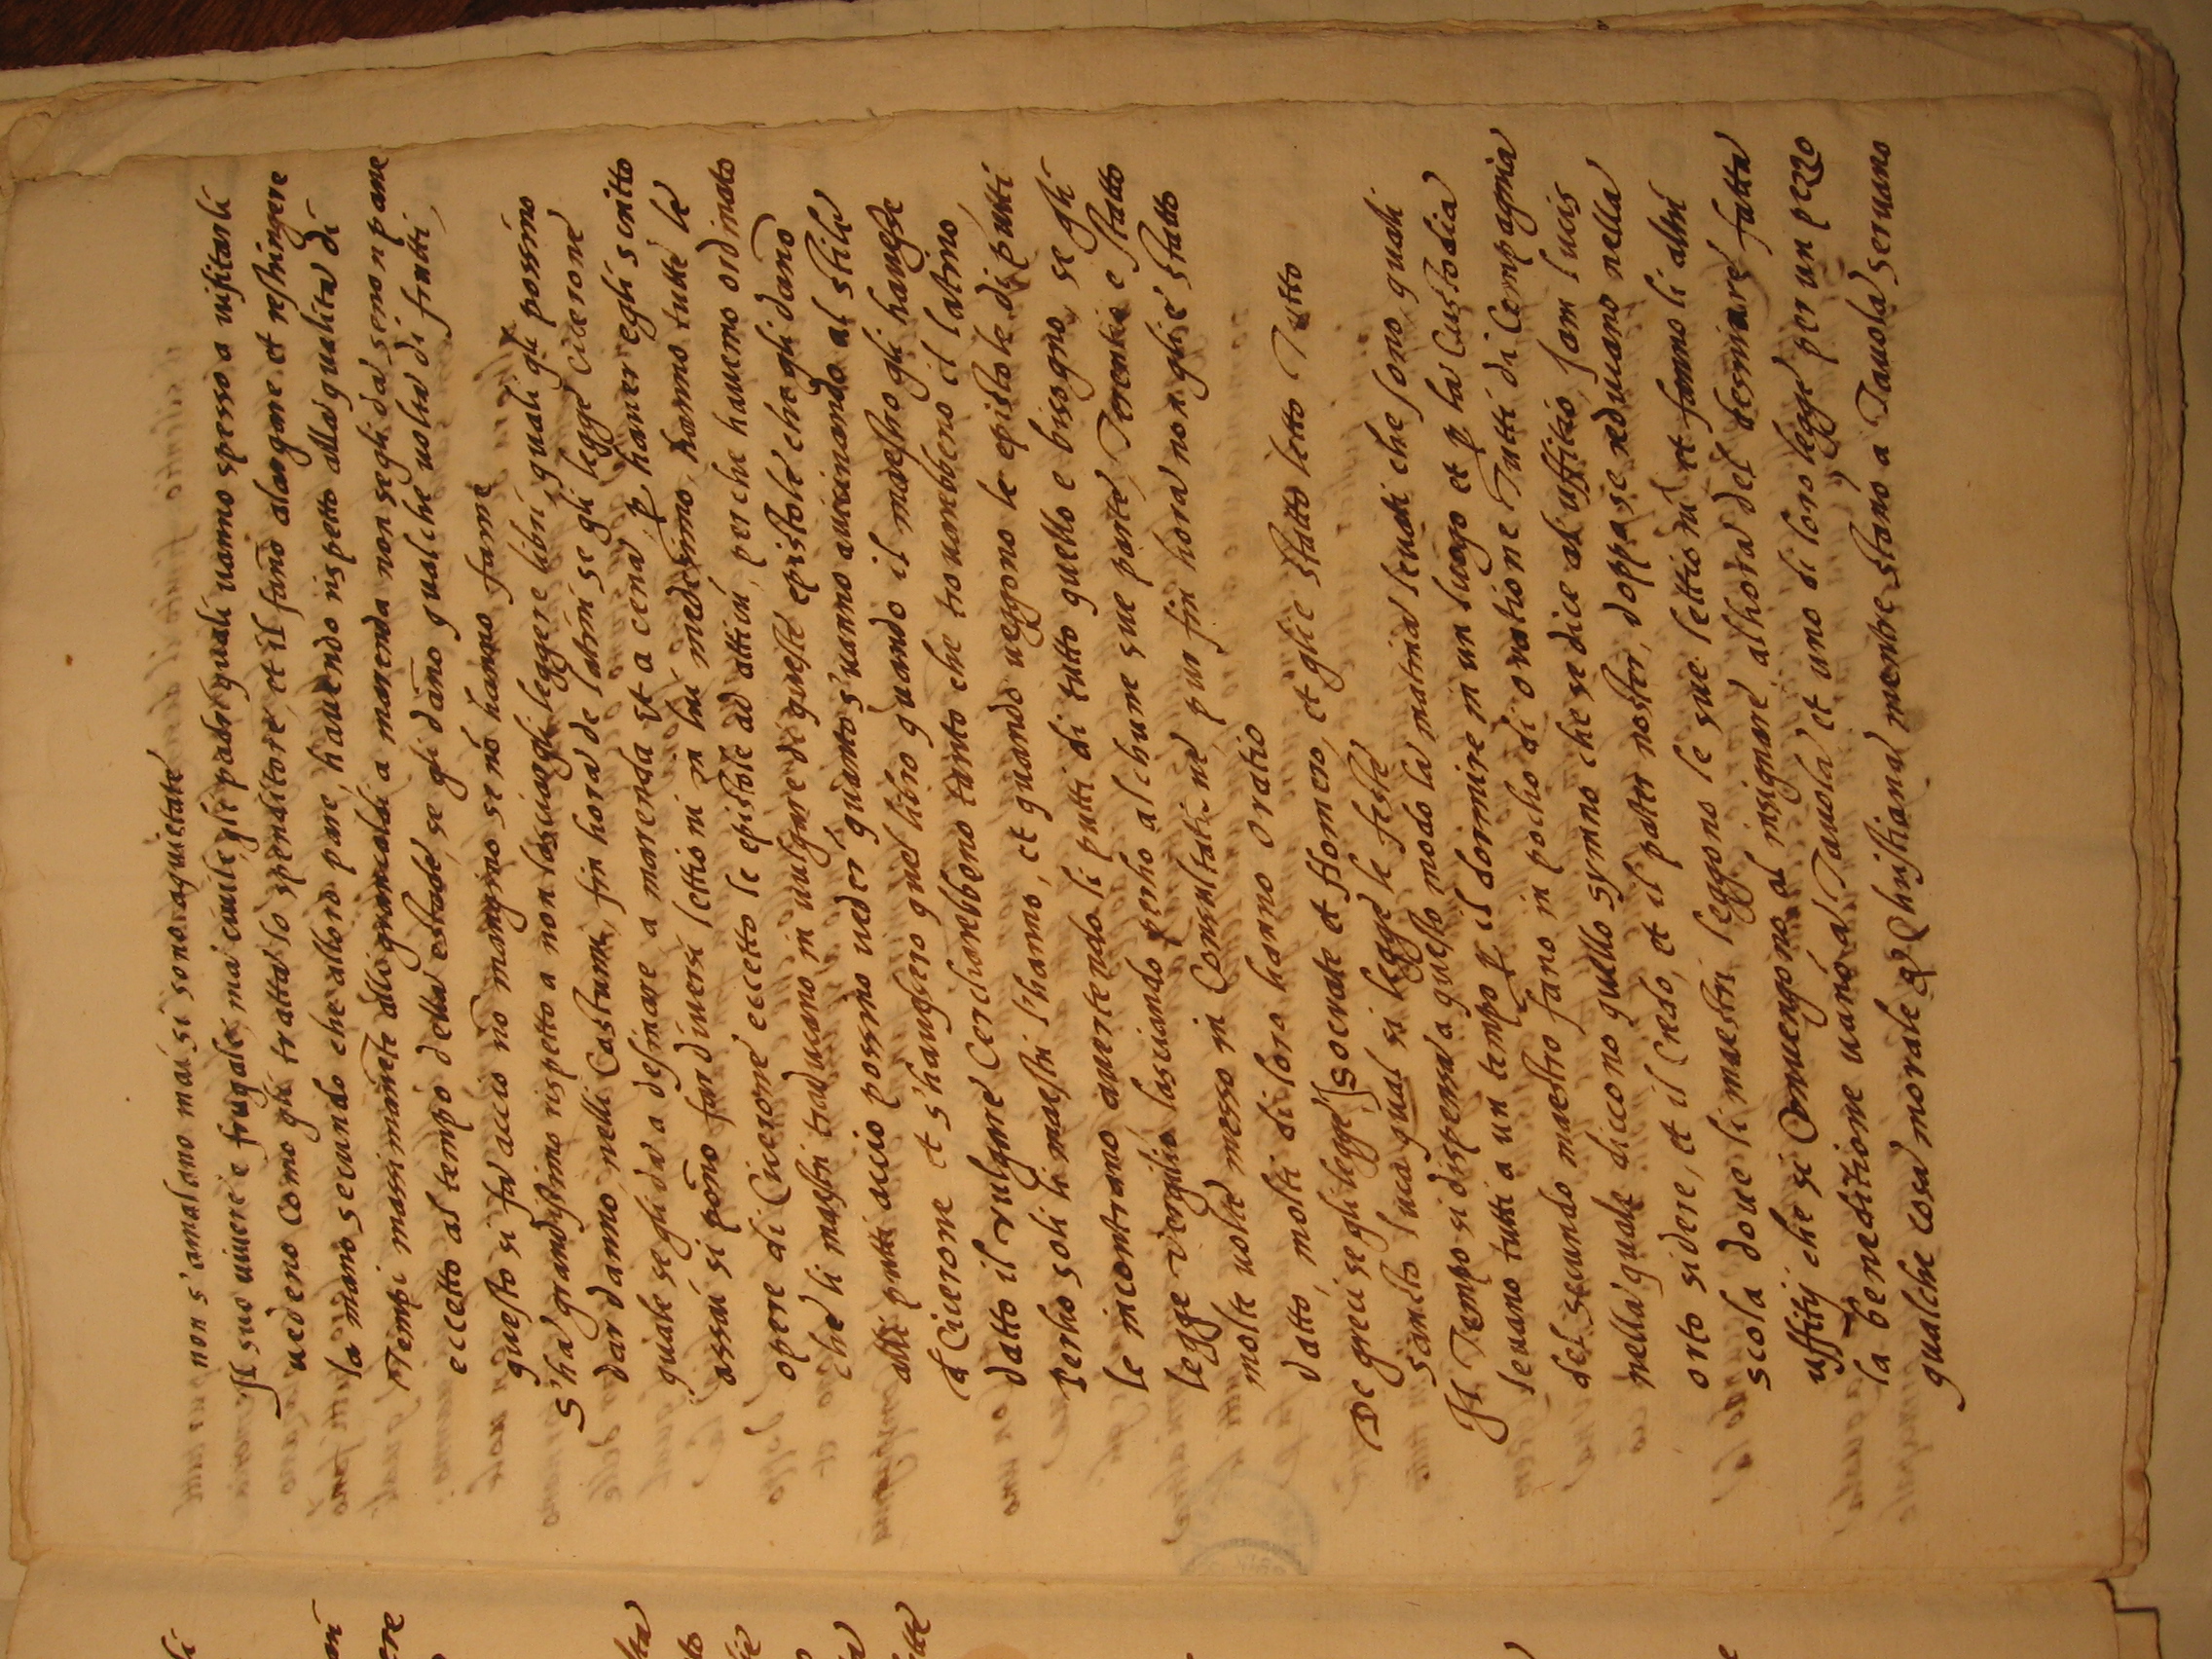 non s'amalano mai si sono aquietate
Il suo vivere è frugale, ma civile, gli padri quali vanno spesso a visitarli
vedeno como gli tratta lo spenditore, et il fano alargare et restringere
la mano secundo che alloro pare, havendo rispetto alla qualita di
Tempi massimamēte alli grammatali a marenda non segli da senon pame
eccetto al tempo della estade, se gli dano qualche volta di frutti,
questo si fa accio nō mangino se nō hanno fame
S'ha grandissimo rispetto a non lasciargli leggere libri, quali gli possino
dar danno, nelli Costumi, fin hora de latini se gli legge Cicerone
quale se gli da a desinare a marenda et a cena, p haver egli scritto
assai si pōno far diverse lettioni in lui medesimo, hanno tutte le
opere di Cicerone eccetto le epistole ad attiū, perche havemo ordinato
che li maestri traducano in vulgare di queste epistole che gli dano
alli putti accio possino veder quanto s'vanno avicinando al stile
di Cicerone et s'havesero quel libro quando il maestro gli havesse
datto il vulgare Cercharebbono tanto che trovarebbeno il latino,
Perho soli li maestri l'hanno, et quando veggono le epistole di putti
le incontrano avertendoli putti di tutto quello e bisogno, se gli
legge vergilio lasciando perho alchune sue parte, Terentio e stato
molte volte messo in Consultatione, pur fin hora non gli e stato
datto, molti di loro hanno Oratio
De greci se gli legge Socrate et Homero, et glie statto letto Tutto
santo luca qual si legge le feste
Il Tempo si dispensa a questo modo la matina levati che sono quali
levano tutti a un tempo p il dormire in un luogo et p la Custodia
del secundo maestro fano in pocho di oratione Tutti di Compagnia
nella quale diccono quello hymno che se dice al uffitio, Iam lucis
orto sidere, et il Credo, et il pater noster, doppo se reducano nella
scola dove li maestri leggono le sue lettioni et fanno li altri
uffitij che si Convengono al insignare, alhora del desinare fatta
la beneditione vano a Tavola et uno di loro legge per un pezzo
qualche cosa morale & Christiana mentre stano a Tavola servano